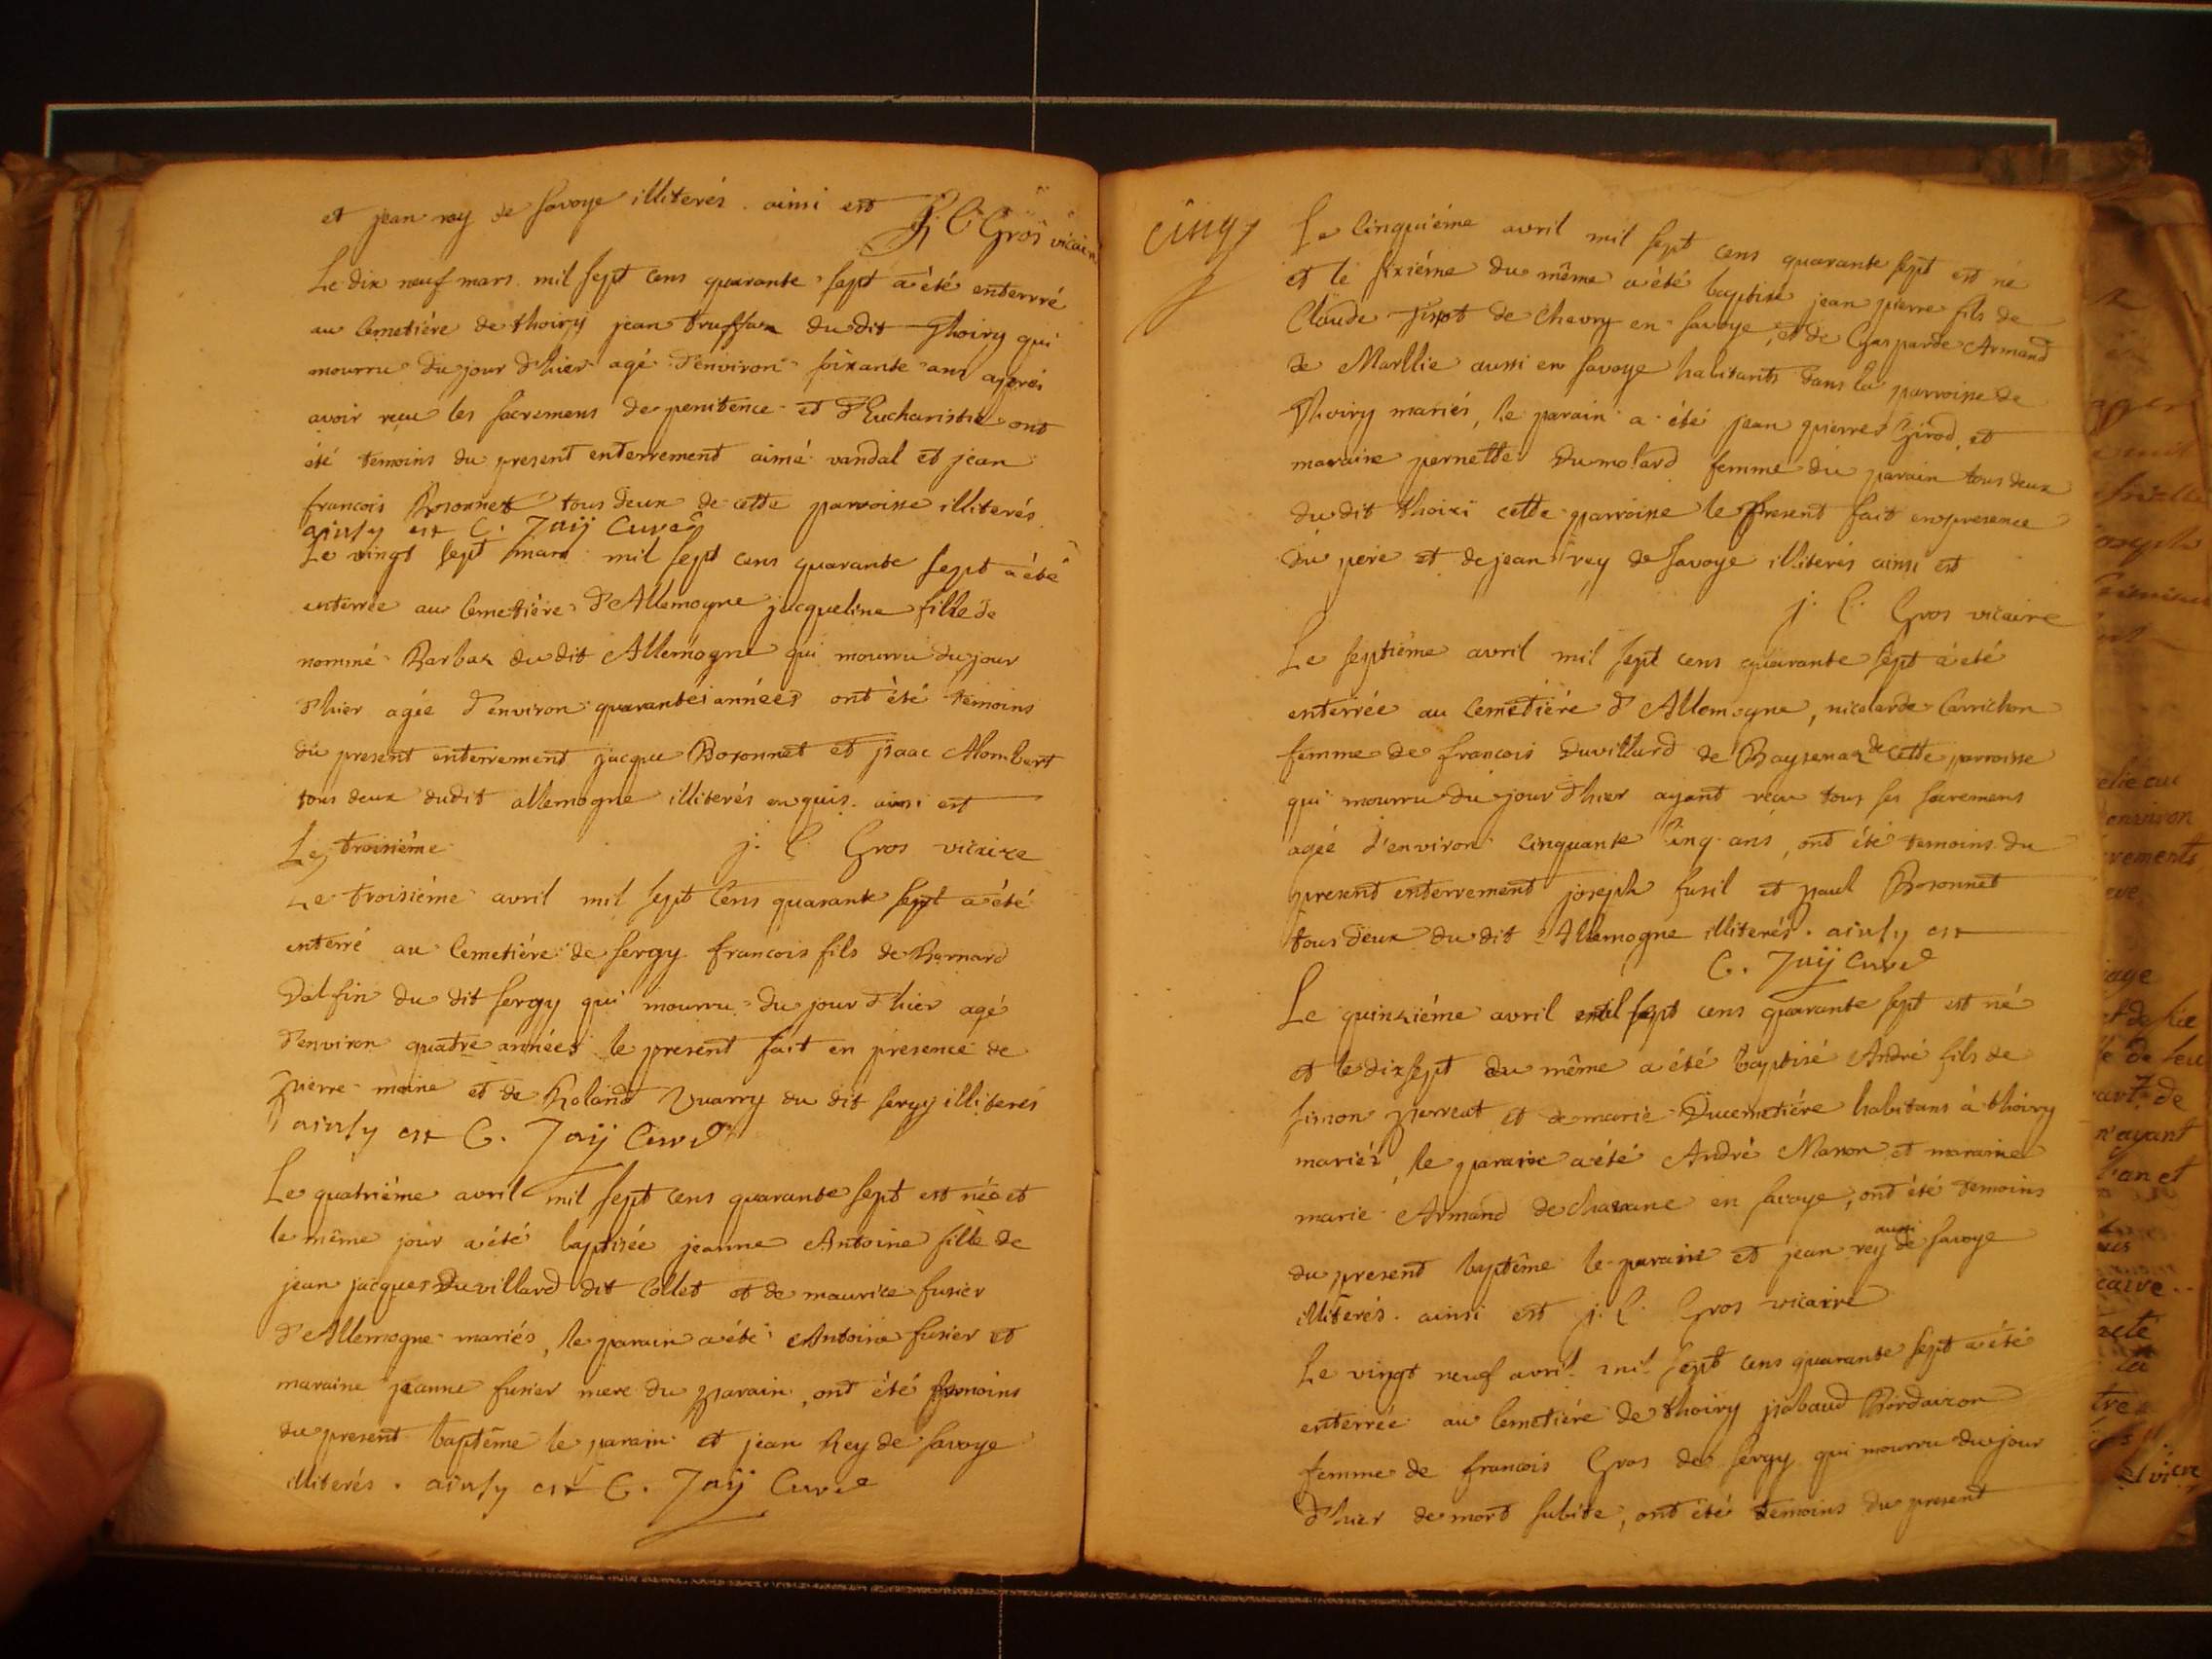 et jean rey de savoye illiterés. ainsi est
j. C. Gros vicaire
Le dix neuf mars mil sept cens quarante sept a été enterrré
au cemetiére de thoiry jean truffaz du dit Thoiry qui
mourru du jour d'hier agé d'environ soixante ans aprés
avoir reçu les sacremens de penitence et d'Eucharistie ont
été temoins du present enterrement aimé vandal et jean
francois Bosonnet tous deux de cette parroisse illiterés.
ainsy est C. Jaÿ Curé
Le vingt sept mars mil sept cens quarante sept a été
enterrée au cemetiére d'Allemogne jacqueline fille de
nommé Barbaz du dit Allemogne qui mourru du jour
d'hier agée d'environ quarante années ont été temoins
du present enterrement jacque Bosonnet et jsaac Mombert
tous deux dudit allemogne illiterés enquis. ainsi est
Le troisiéme j. C. Gros vicaire
Le troisiéme avril mil sept Cens quarante sept a été
enterré au cemetiére de sergy francois fils de Bernard
Dalfin du dit sergy qui mourru du jour d'hier agé
d'environ quatre années le present fait en presence de
pierre moine et de Roland Vuarry du dit sergy illiterés
ainsy est C. Jaÿ Curé
Le quatriéme avril mil sept cens quarante sept est née et
le même jour a été baptisée jeanne Antoine fille de
jean jacques Duvillard dit Collet et de maurice fusier
d'Allemogne mariés, le parain a été Antoine fusier et
maraine jeanne fusier mere du parain, ont été temoins
du present baptême le parain et jean Rey de savoye
illiterés. ainsy est C. Jaÿ Curé
cinq
Le cinquiéme avril mil sept cens quarante sept est né
et le sixiéme du même a été baptisé jean pierre fils de
Claude de Chevry en savoye, et de Gasparde Armand
de Marllie aussi en savoye habitants dans la parroisse de
Thoiry mariés, le parain a été jean pierre Girod, et
maraine pernette Dumolard femme du parain tous deux
du dit thoiri cette parroisse le present fait en presence
du pere et de jean rey de savoye illiterés ainsi est
j. C. Gros vicaire
Le septiéme avril mil sept cens quarante sept a été
enterrée au cemetiére d'Allemogne, nicolarde Carrichon
femme de francois Duvillard de Baysenaz de cette parroisse
qui mourru du jour d'hier ayant reçu tous ses sacremens
agée d'environ cinquante cinq ans, ont été temoins du
present enterrement joseph fusil et paul Bosonnet
tous deux du dit Allemogne illiterés. ainsy est
C. Jaÿ Curé
Le quinziéme avril mil sept cens quarante sept est né
et le dixsept du même a été baptisé André fils de
simon perreat et de marie Ducemetiére habitans à thoiry
mariés, le parain a été André Manon et maraine
marie Armand de chavane en savoye, ont été temoins
du present baptême le parain et jean rey aussi de savoye
illiterés. ainsi est j. C. Gros vicaire
Le vingt neuf avril mil sept cens quarante sept a été
enterrée au cemetiére de thoiry jsabaud Bordairon
femme de francois Gros de sergy qui mourru du jour
d'hier de mort subite, ont été temoins du present